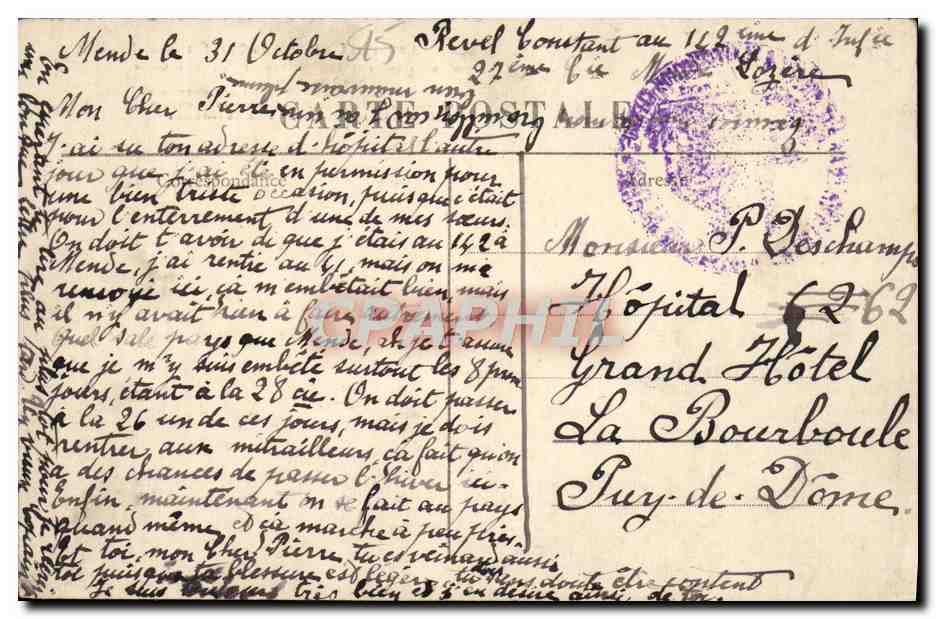 Mende le 31 Octobre 15
Revel Constant au 142ème d'Infie
27ème Cie Mende Lozère
Mon Cher Pierre
CARTE POSTALE
J'ai su ton adresse d'hôpital l'autre
jour que j'ai été en permission pour
Correspondance
Adresse
une bien triste occasion, puisque c'était
pour l'enterrement d'une de mes sœurs.
On doit t'avoir dit que j'étais au 142 à
Mende, j'ai rentré au 41, mais on m'a
renvoyé ici, ça m'embêtait bien mais
il n'y avait rien à faire
CPAPHIL
Quel sale pays que Mende, ah je t'assure
que je m'y suis embêté surtout les 8 prem
jours, étant à la 28 cie. On doit passer
à la 26 un de ces jours, mais je dois
rentrer aux mitrailleurs, ça fait qu'on
a des chances de passer l'hiver ici.
Enfin, maintenant on se fait au pays
quand même et ça marche à peu près.
Et toi, mon Cher Pierre, tu es veinard aussi
toi, puisque ta blessure est légère tu dois sans doute être content
Je suis toujours très bien et j'en désire ainsi de toi.
Monsieur P. Deschamps
Hôpital 62 62
Grand Hôtel
La Bourboule
Puy-de-Dôme.